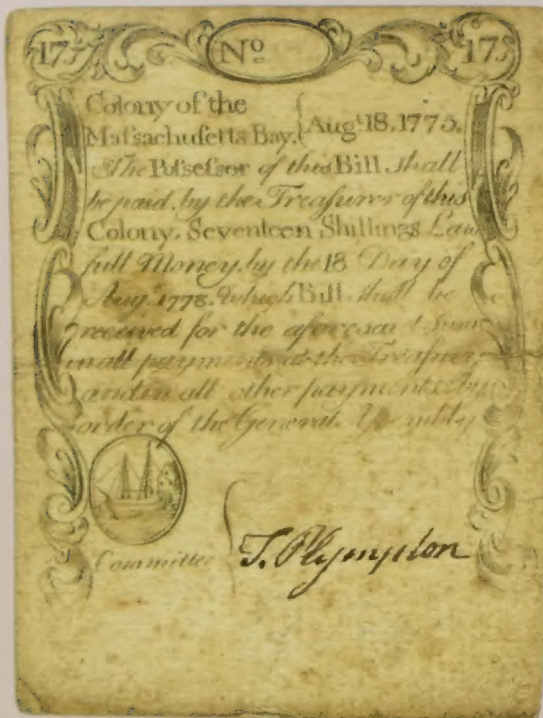 17ˢ Nº 17ˢ
Colony of the
Maſsachuſetts Bay. { Augᵗ 18. 1775.
The Poſseſsor of this Bill shall
be paid, by the Treaſurer of this
Colony, Seventeen Shillings Law
full Money, by the 18 Day of
Augᵗ 1778. which Bill shall be
received for the aforesaid Sum
in all payments at the Treaſury
and in all other payments by
order of the General Aſsembly
Committee { T. Plympton